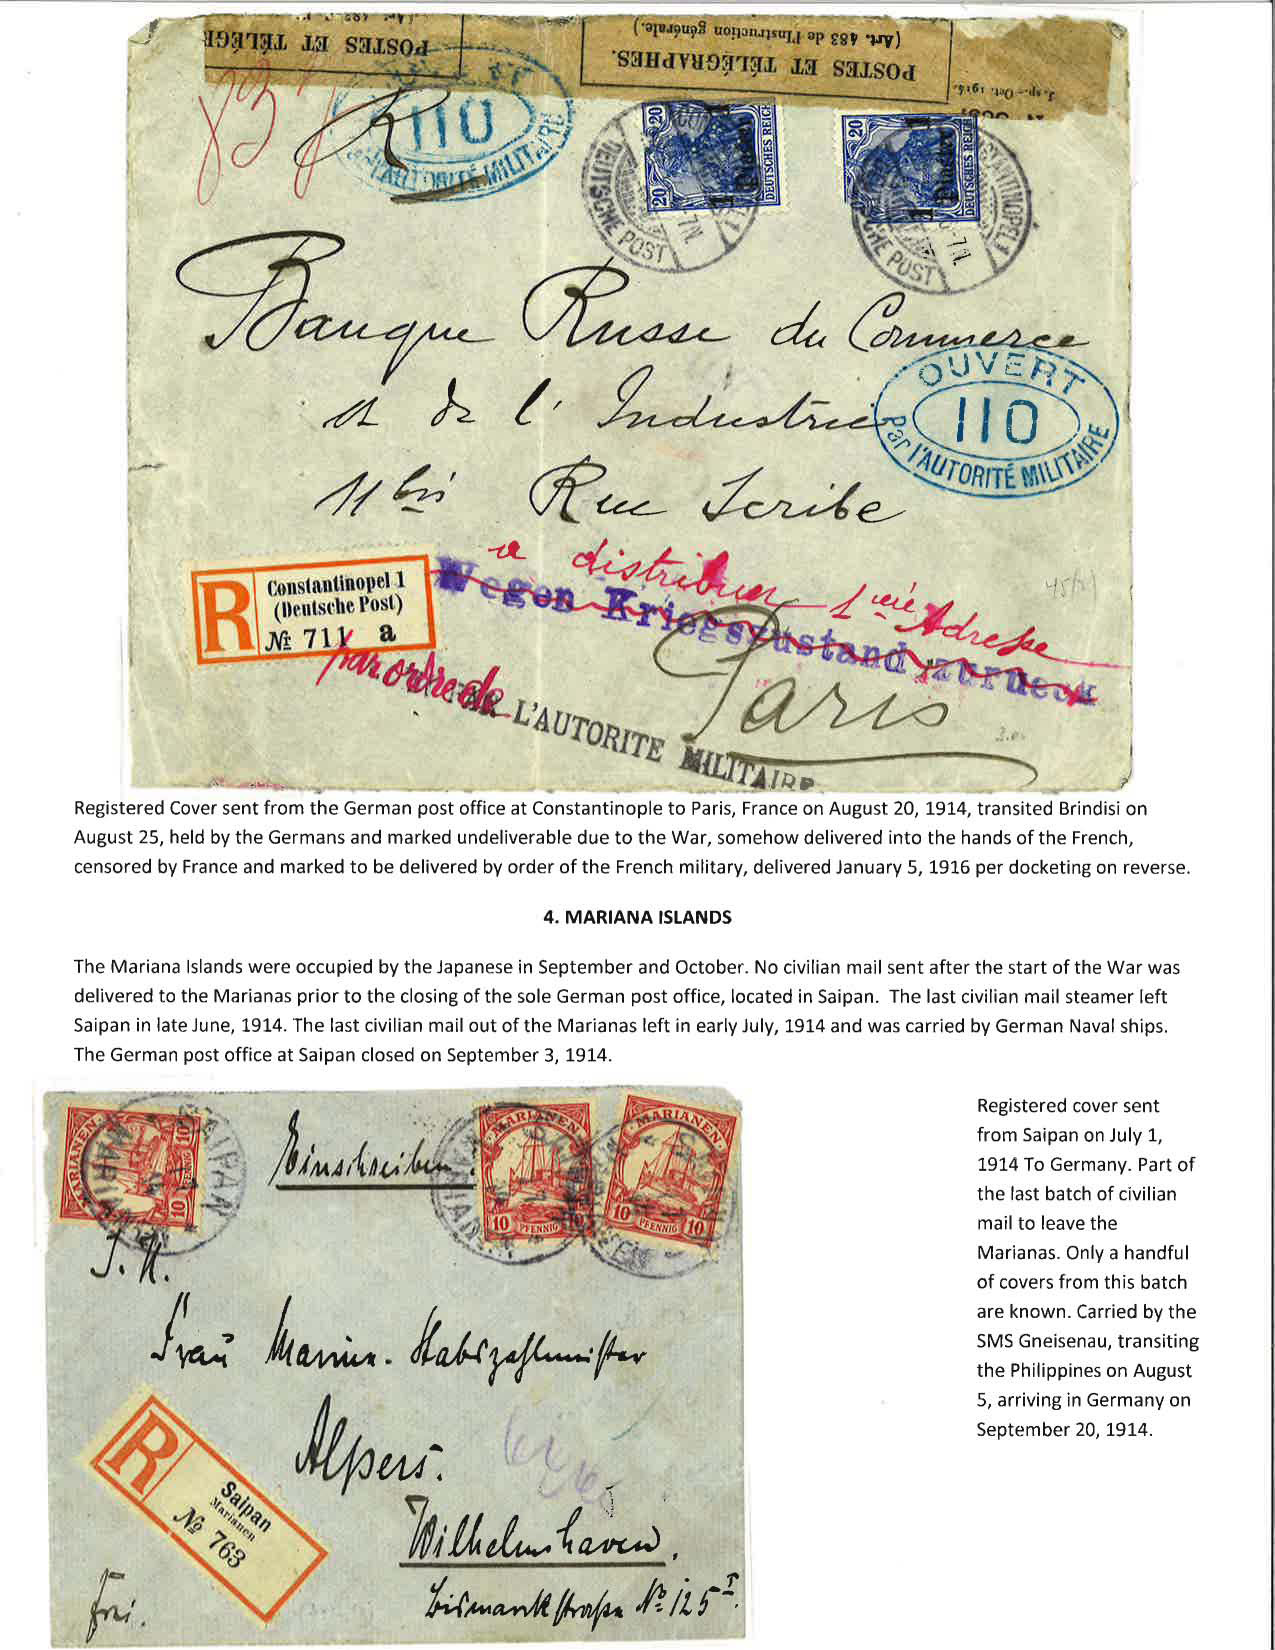 (Art. 483 de l'Instruction générale.)
POSTES ET TÉLÉGRAPHES.
POSTES ET TÉLÉGR
J. sp.- Oct. 1914.
R
110
L'AUTORITÉ MILITAIRE
20 1 Piaster 1 DEUTSCHES REICH 20
20 1 Piaster 1 DEUTSCHES REICH
DEUTSCHE POST
CONSTANTINOPEL 1
DEUTSCHE POST
Banque Russe du Commerce
et de l'Industrie
OUVERT
110
Par L'AUTORITÉ MILITAIRE
11 bis Rue Scribe
a distribuer 1ere Adresse
Wegen Kriegszustand zurueck
par ordre de
R Constantinopel 1
(Deutsche Post)
№ 711 a
PAR L'AUTORITE MILITAIRE
Paris
Registered Cover sent from the German post office at Constantinople to Paris, France on August 20, 1914, transited Brindisi on
August 25, held by the Germans and marked undeliverable due to the War, somehow delivered into the hands of the French,
censored by France and marked to be delivered by order of the French military, delivered January 5, 1916 per docketing on reverse.
4. MARIANA ISLANDS
The Mariana Islands were occupied by the Japanese in September and October. No civilian mail sent after the start of the War was
delivered to the Marianas prior to the closing of the sole German post office, located in Saipan. The last civilian mail steamer left
Saipan in late June, 1914. The last civilian mail out of the Marianas left in early July, 1914 and was carried by German Naval ships.
The German post office at Saipan closed on September 3, 1914.
MARIANEN 10 PFENNIG 10
SAIPAN
MARIANEN
Einschreiben.
MARIANEN 10 PFENNIG 10
MARIANEN 10 PFENNIG 10
Frau Marine-Stabszahlmeister
Alpers.
Wilhelmshaven.
Bismarckstraße № 125 I.
R Saipan
Marianen
№ 763
frei.
Registered cover sent
from Saipan on July 1,
1914 To Germany. Part of
the last batch of civilian
mail to leave the
Marianas. Only a handful
of covers from this batch
are known. Carried by the
SMS Gneisenau, transiting
the Philippines on August
5, arriving in Germany on
September 20, 1914.